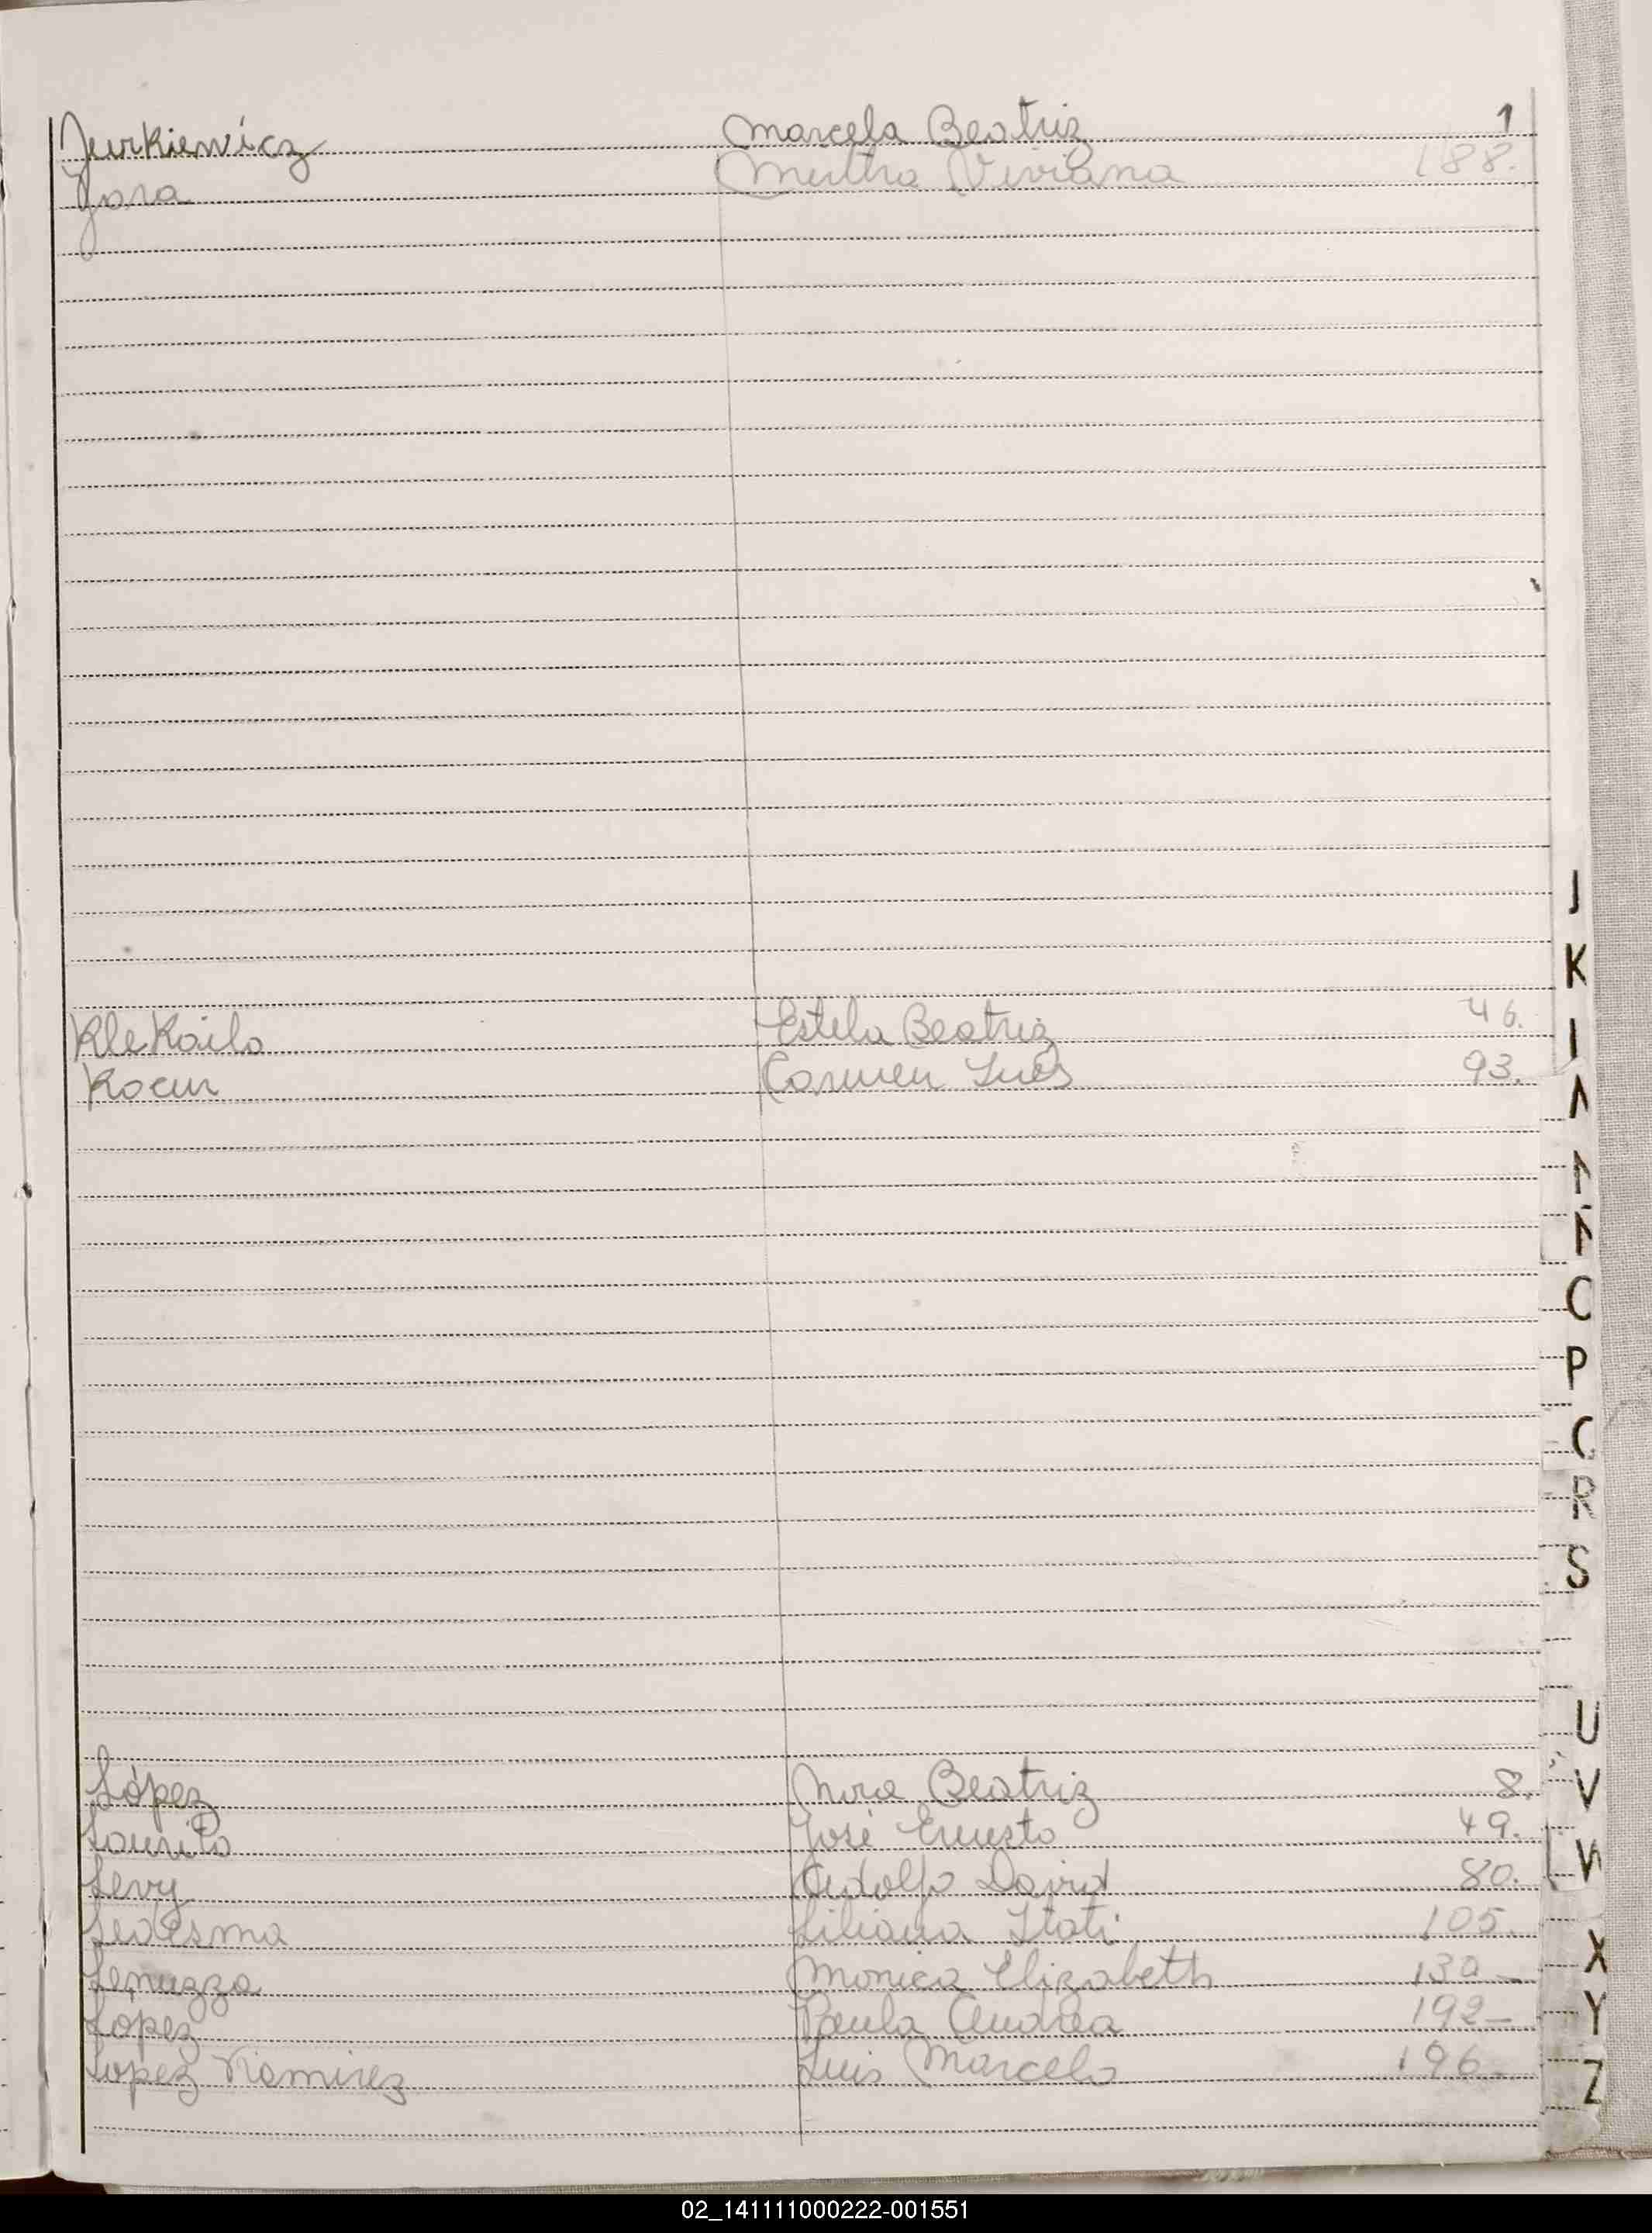 Jurkiewicz Marcela Beatriz 1
Jara Mirtha Viviana 188.
Klekailo Estela Beatriz 46.
Kocur Carmen Inés 93.
López Nora Beatriz 8.
José Ernesto 49.
Levy Adolfo David 80.
Ledesma Liliana Itati 105.
Monica Elizabeth
López Paula Andrea 192-
Lopez Ramirez Luis Marcelo 196-
J
K
P
R
S
U
V
W
X
Y
Z
02_141111000222-001551